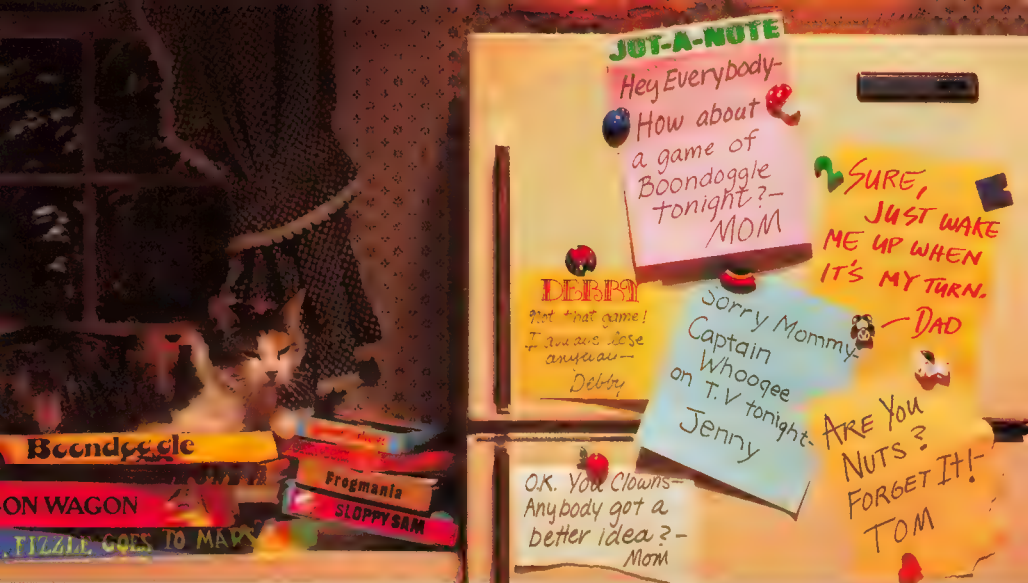 JOT-A-NOTE
Hey Everybody-
How about
a game of
Boondoggle
tonight?-
MOM
SURE,
JUST WAKE
ME UP WHEN
IT'S MY TURN.
- DAD
DEBBY
Not that game!
I always lose
anyway-
Debby
Sorry Mommy-
Captain
Whoogee
on T.V tonight-
Jenny
ARE YOU
NUTS?
FORGET IT!-
TOM
O.K. You Clowns-
Anybody got a
better idea?-
Mom
Boondoggle
ON WAGON
FIZZLE GOES TO MARS
Frogmania
SLOPPY SAM